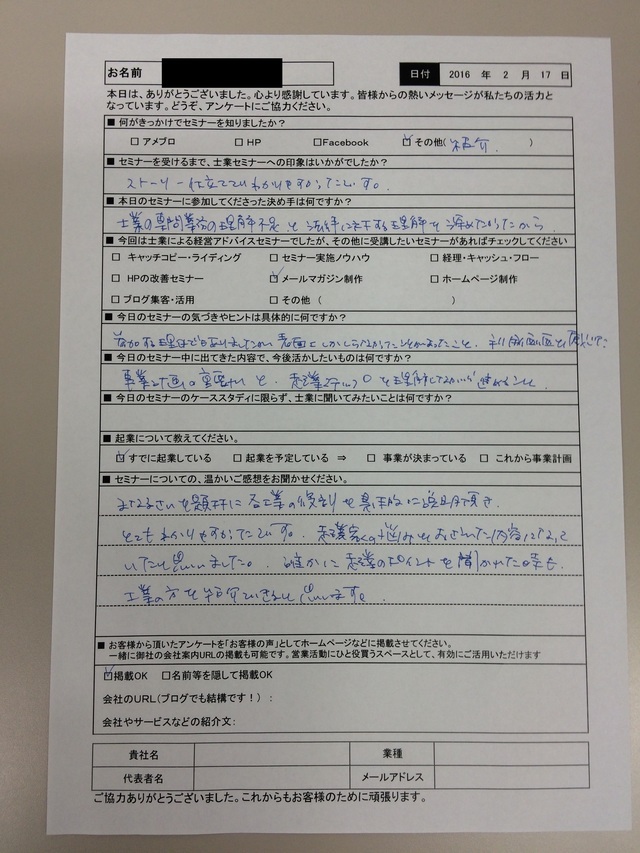 お名前
日付 2016 年 2 月 17 日
本日は、ありがとうございました。心より感謝しています。皆様からの熱いメッセージが私たちの活力と
なっています。どうぞ、アンケートにご協力ください。
■ 何がきっかけでセミナーを知りましたか？
□ アメブロ □ HP □Facebook ☑ その他( 紹介. )
■ セミナーを受けるまで、士業セミナーへの印象はいかがでしたか？
ストーリー仕立てでわかりやすかったです。
■ 本日のセミナーに参加してくださった決め手は何ですか？
士業の専門業務の理解不足と法律に対する理解を深めたかったから
■ 今回は士業による経営アドバイスセミナーでしたが、その他に受講したいセミナーがあればチェックしてください
□ キャッチコピー・ライディング □ セミナー実施ノウハウ □ 経理・キャッシュ・フロー
□ HPの改善セミナー ☑ メールマガジン制作 □ ホームページ制作
□ ブログ集客・活用 □ その他 ( )
■ 今日のセミナーの気づきやヒントは具体的に何ですか？
表面上しかしらなかったことがあったこと、
■ 今日のセミナー中に出てきた内容で、今後活かしたいものは何ですか？
事業計画の重要性と、起業ステップを理解しながら進めること
■ 今日のセミナーのケーススタディに限らず、士業に聞いてみたいことは何ですか？
■ 起業について教えてください。
☑ すでに起業している □ 起業を予定している ⇒ □ 事業が決まっている □ これから事業計画
■ セミナーについての、温かいご感想をお聞かせください。
を題材に各士業の役割を具体的に説明頂き
とてもわかりやすかったです。起業家の悩みを内容になって
いたと思いました。確かに起業のポイントを聞かれた時も、
士業の方を紹介できると思います。
■ お客様から頂いたアンケートを「お客様の声」としてホームページなどに掲載させてください。
一緒に御社の会社案内URLの掲載も可能です。営業活動にひと役買うスペースとして、有効にご活用いただけます
☑掲載OK □名前等を隠して掲載OK
会社のURL(ブログでも結構です！)：
会社やサービスなどの紹介文:
貴社名 業種
代表者名 メールアドレス
ご協力ありがとうございました。これからもお客様のために頑張ります。